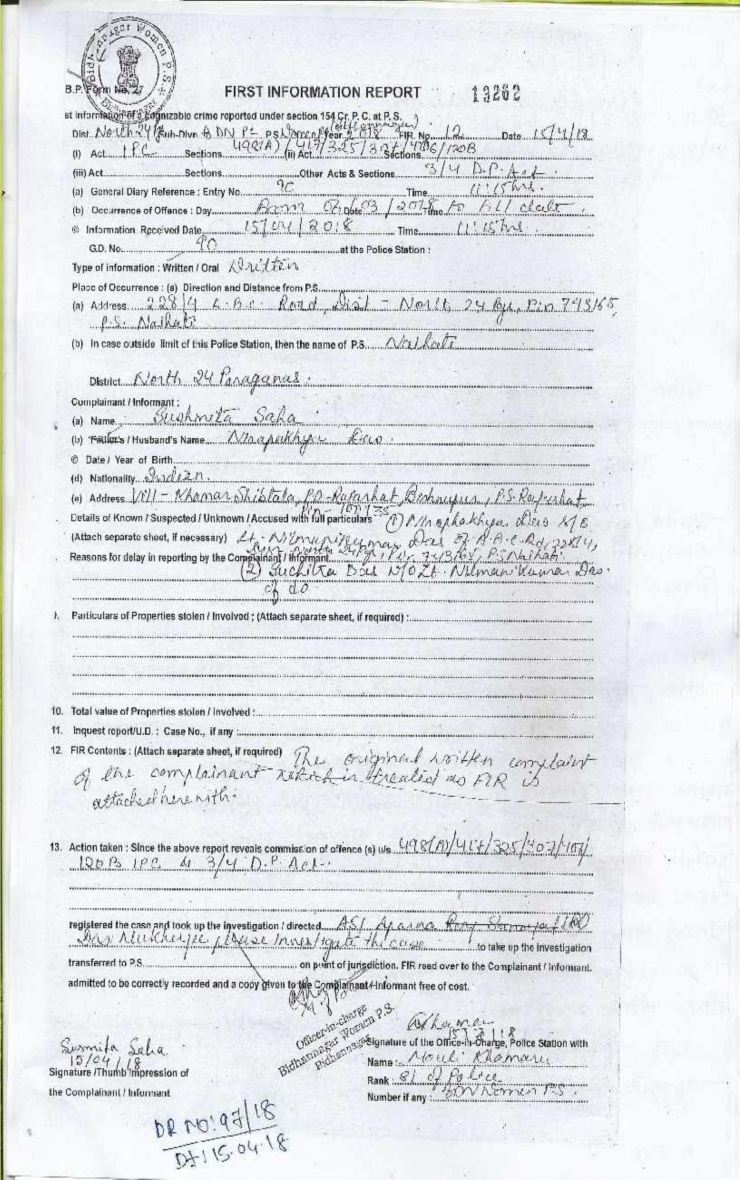 Bidhannagar Women P.S.
Bidhannagar
B.P. Form No. 27
FIRST INFORMATION REPORT 13262
st Information of a cognizable crime reported under section 154 Cr. P. C. at P. S.
Dist. North 24 Sub-Divn. BDN PC P.S. Women PS Year 2018 FIR. No. 12 Date 15/4/18
(i) Act IPC Sections 498(A)/417/325/307/406/120B (ii) Act Sections
(iii) Act Sections Other Acts & Sections 3/4 D.P. Act
(a) General Diary Reference : Entry No. 90 Time 11:15 hrs.
(b) Occurrence of Offence : Day From Date 03/2018 Time to till date.
© Information Received Date 15/04/2018 Time 11:15 hrs
G.D. No. 90 at the Police Station :
Type of information : Written / Oral Written
Place of Occurrence : (a) Direction and Distance from P.S.
(a) Address 228/4 A.B.C. Road, Dist - North 24 Pgs, Pin 743165,
P.S. Naihati
(b) In case outside limit of this Police Station, then the name of P.S. Naihati
District North 24 Paraganas.
Complainant / Informant :
(a) Name Sushmita Saha
(b) Father's / Husband's Name Das.
© Date / Year of Birth
(d) Nationality Indian.
(e) Address Vill - Khamar Shibtala, P.O - Rajarhat, Bishnupur, P.S. Rajarhat,
Pin - 700135
Details of Known / Suspected / Unknown / Accused with full particulars (1) Das S/O
(Attach separate sheet, if necessary) Lt. Nilmani Kumar Das of A.B.C. Rd, 228/4,
Reasons for delay in reporting by the Complainant / Informant Dist North 24 Pgs, Pin 743165, P.S Naihati.
(2) Suchitra Das W/O Lt. Nilmani Kumar Das.
of do.
). Particulars of Properties stolen / Involved ; (Attach separate sheet, if required) :
10. Total value of Properties stolen / Involved :
11. Inquest report/U.D. : Case No., if any :
12. FIR Contents : (Attach separate sheet, if required) The original written complaint
of the complainant which is treated as FIR is
attached herewith.
13. Action taken : Since the above report reveals commission of offence (s) u/s 498(A)/417/325/307/406/
120B IPC & 3/4 D.P. Act.
registered the case and took up the investigation / directed ASI Aparna
Mukherjee please investigate the case to take up the investigation
transferred to P.S. on point of jurisdiction. FIR read over to the Complainant / Informant.
admitted to be correctly recorded and a copy given to the Complainant / Informant free of cost.
Officer-in-charge
Bidhannagar Women P.S.
Bidhannagar
15/04/18
Signature of the Office-in-Charge, Police Station with
Name : Mouli Khamaru
Rank : SI of Police
Number if any : BDN Women P.S.
Susmita Saha
15/04/18
Signature /Thumb Impression of
the Complainant / Informant
DR NO: 97/18
Dt: 15.04.18